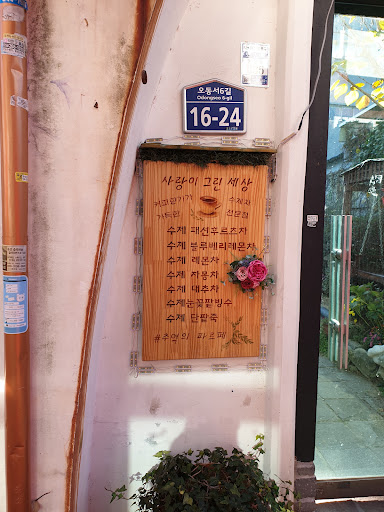 오동서6길
Odongseo 6-gil
16-24
사랑이 그린 세상
커피향기가
가득한
수제차
전문점
수제 패션후르츠차
수제 블루베리레몬차
수제 레몬차
수제 자몽차
수제 대추차
수제눈꽃팥빙수
수제 단팥죽
#추억의 파르페